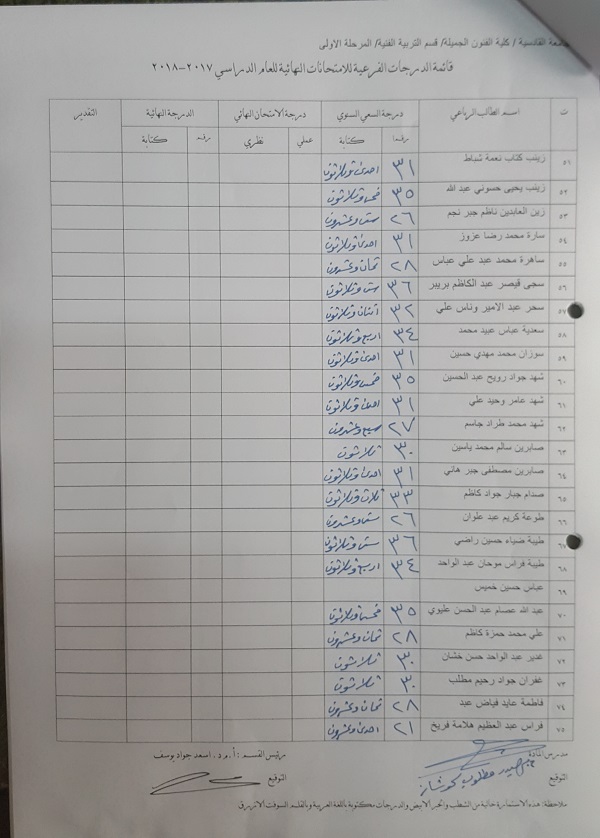 جامعة القادسية / كلية الفنون الجميلة/ قسم التربية الفنية/ المرحلة الاولى
قائمة الدرجات الفرعية للامتحانات النهائية للعام الدراسي ٢٠١٧-٢٠١٨
ت اسم الطالب الرباعي درجة السعي السنوي درجة الامتحان النهائي الدرجة النهائية التقدير
رقما كتابة عملي نظري رقم كتابة
٥١ زينب كتاب نعمة شباط ٣١ احدى وثلاثون
٥٢ زينب يحيى حسوني عبد الله ٣٥ خمس وثلاثون
٥٣ زين العابدين ناظم جبر نجم ٢٦ ست وعشرون
٥٤ سارة محمد رضا عزوز ٣١ احدى وثلاثون
٥٥ ساهرة محمد عبد علي عباس ٢٨ ثمان وعشرون
٥٦ سجى قيصر عبد الكاظم بريبر ٣٦ ست وثلاثون
٥٧ سحر عبد الامير وناس علي ٣٢ اثنان وثلاثون
٥٨ سعدية عباس عبيد محمد ٣٤ اربع وثلاثون
٥٩ سوزان محمد مهدي حسين ٣١ احدى وثلاثون
٦٠ شهد جواد رويح عبد الحسين ٣٥ خمس وثلاثون
٦١ شهد عامر وحيد علي ٣١ احدى وثلاثون
٦٢ شهد محمد طراد جاسم ٢٧ سبع وعشرون
٦٣ صابرين سالم محمد ياسين ٣٠ ثلاثون
٦٤ صابرين مصطفى جبر هاني ٣١ احدى وثلاثون
٦٥ صدام جبار جواد كاظم ٣٣ ثلاث وثلاثون
٦٦ طوعة كريم عبد علوان ٢٦ ست وعشرون
٦٧ طيبة ضياء حسين راضي ٣٦ ست وثلاثون
٦٨ طيبة فراس موحان عبد الواحد ٣٤ اربع وثلاثون
٦٩ عباس حسين خميس
٧٠ عبد الله عصام عبد الحسن عليوي ٣٥ خمس وثلاثون
٧١ علي محمد حمزة كاظم ٢٨ ثمان وعشرون
٧٢ غدير عبد الواحد حسن خشان ٣٠ ثلاثون
٧٣ غفران جواد رحيم مطلب ٣٠ ثلاثون
٧٤ فاطمة عايد فياض عبد ٢٨ ثمان وعشرون
٧٥ فراس عبد العظيم هلامة فريخ ٢١ احدى وعشرون
مدرس المادة رئيس القسم : أ.م.د. اسعد جواد يوسف
التوقيع التوقيع
ملاحظة: هذه الاستمارة خالية من الشطب والحبر الابيض والدرجات مكتوبة باللغة العربية وبالقلم السوفت الازرق